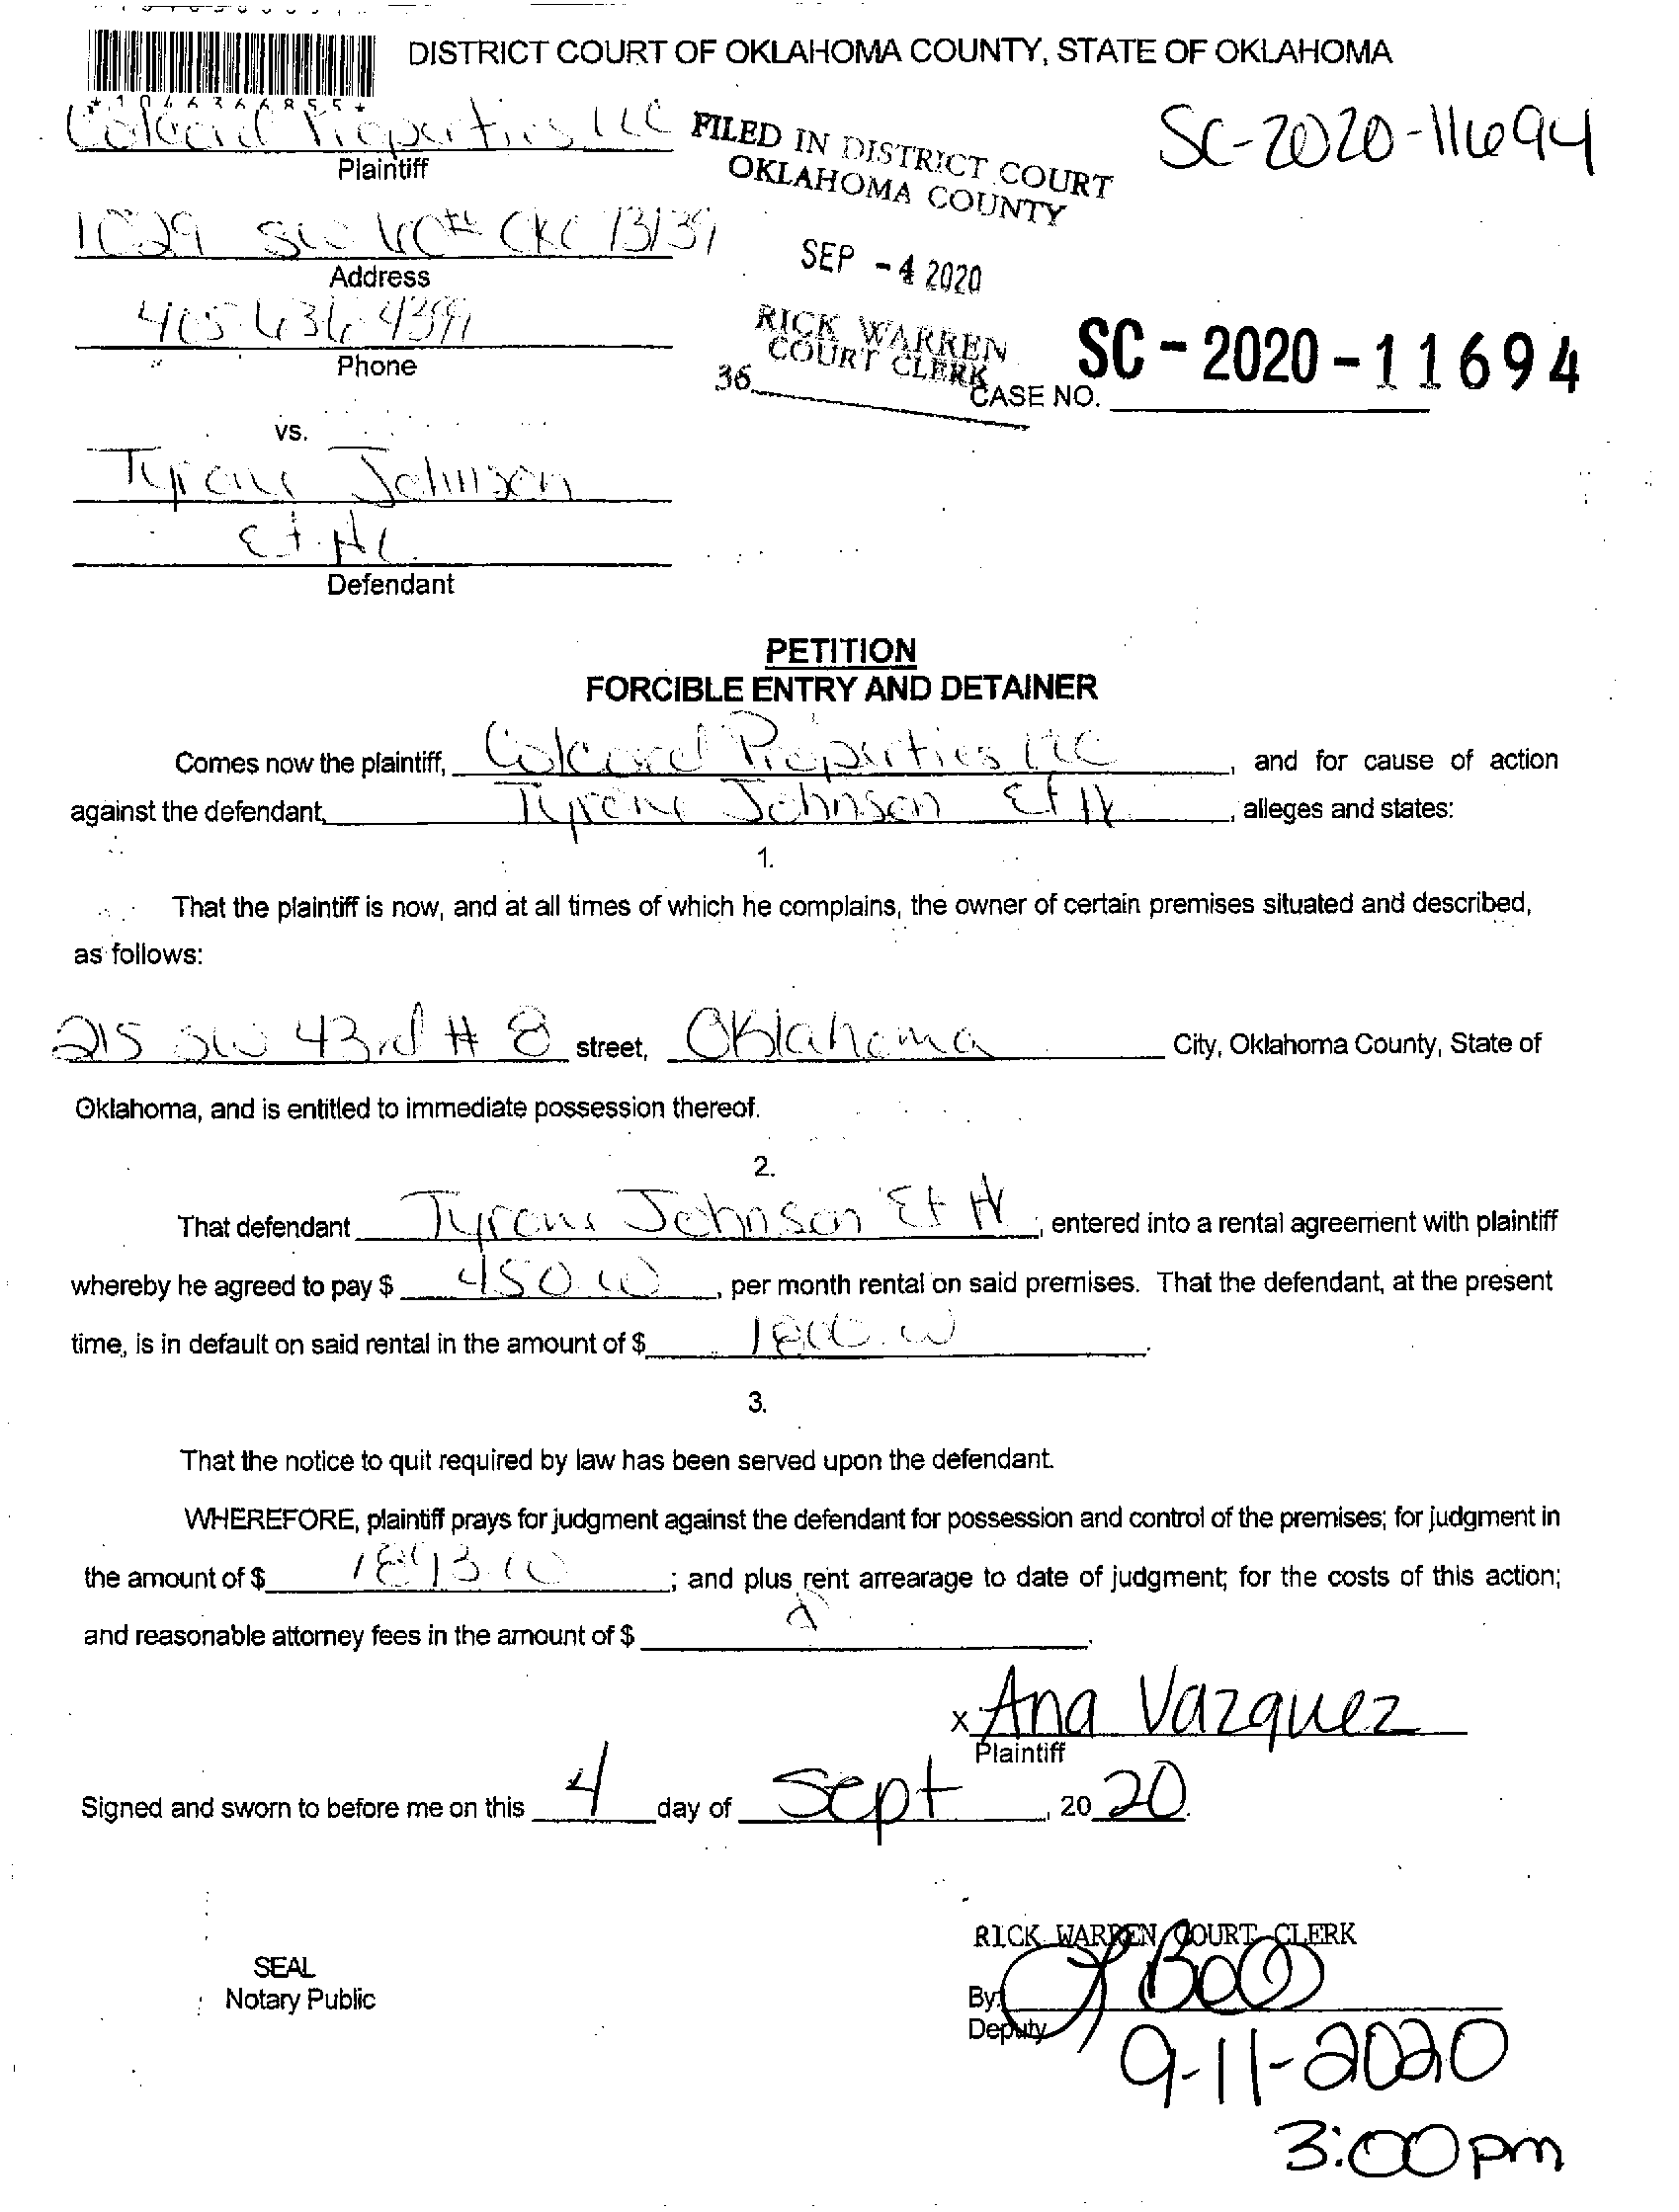 DISTRICT COURT OF OKLAHOMA COUNTY, STATE OF OKLAHOMA
*1046366855*
Colcord Properties LLC
Plaintiff
FILED IN DISTRICT COURT
OKLAHOMA COUNTY
SC-2020-11694
1029 SW OKC
Address
SEP -4 2020
405 636 4399
Phone
RICK WARREN
COURT CLERK
36
CASE NO. SC-2020-11694
vs.
Tyrone Johnson
Et Al
Defendant
PETITION
FORCIBLE ENTRY AND DETAINER
Comes now the plaintiff, Colcord Properties LLC, and for cause of action
against the defendant, Tyrone Johnson Et Al, alleges and states:
1.
That the plaintiff is now, and at all times of which he complains, the owner of certain premises situated and described,
as follows:
215 SW 43rd # 8 street, Oklahoma City, Oklahoma County, State of
Oklahoma, and is entitled to immediate possession thereof.
2.
That defendant Tyrone Johnson Et Al, entered into a rental agreement with plaintiff
whereby he agreed to pay $ 450.00, per month rental on said premises. That the defendant, at the present
time, is in default on said rental in the amount of $ 1800.00.
3.
That the notice to quit required by law has been served upon the defendant.
WHEREFORE, plaintiff prays for judgment against the defendant for possession and control of the premises; for judgment in
the amount of $ 1893.00; and plus rent arrearage to date of judgment; for the costs of this action;
and reasonable attorney fees in the amount of $
x Ana Vazquez
Plaintiff
Signed and sworn to before me on this 4 day of Sept, 20 20.
RICK WARREN COURT CLERK
SEAL
Notary Public
By:
Deputy
9-11-2020
3:00pm